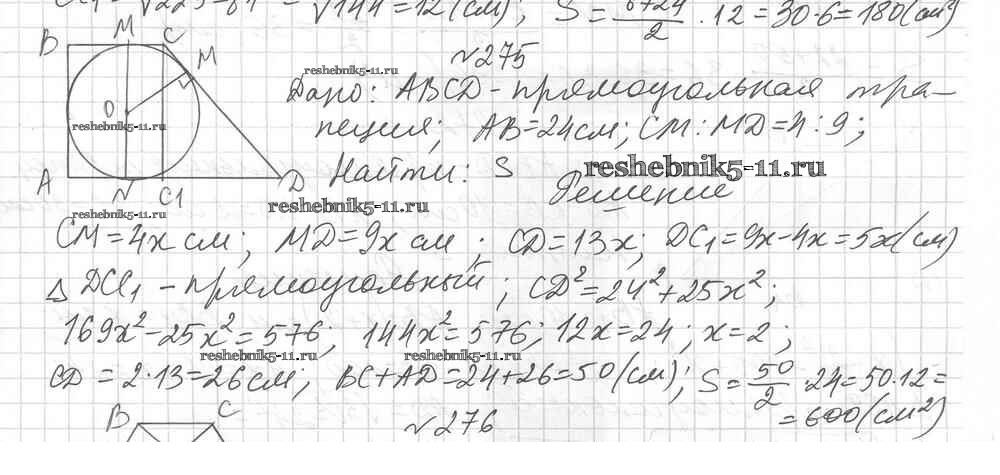 CC1 = √225-81 = √144 = 12 (см); S = 6+24/2 · 12 = 30·6 = 180 (см²)
№275
B M C M
reshebnik5-11.ru
Дано: ABCD - прямоугольная тра-
O
reshebnik5-11.ru
пеция; AB = 24 см; CM : MD = 4 : 9;
Найти: S
reshebnik5-11.ru
A N C1 D
reshebnik5-11.ru
Решение
reshebnik5-11.ru
CM = 4x см; MD = 9x см; CD = 13x; DC1 = 9x - 4x = 5x (см)
△ DCC1 - прямоугольный; CD² = 24² + 25x²;
169x² - 25x² = 576; 144x² = 576; 12x = 24; x = 2;
reshebnik5-11.ru reshebnik5-11.ru
CD = 2·13 = 26 см; BC + AD = 24 + 26 = 50 (см); S = 50/2 · 24 = 50·12 =
= 600 (см²)
B C
№276